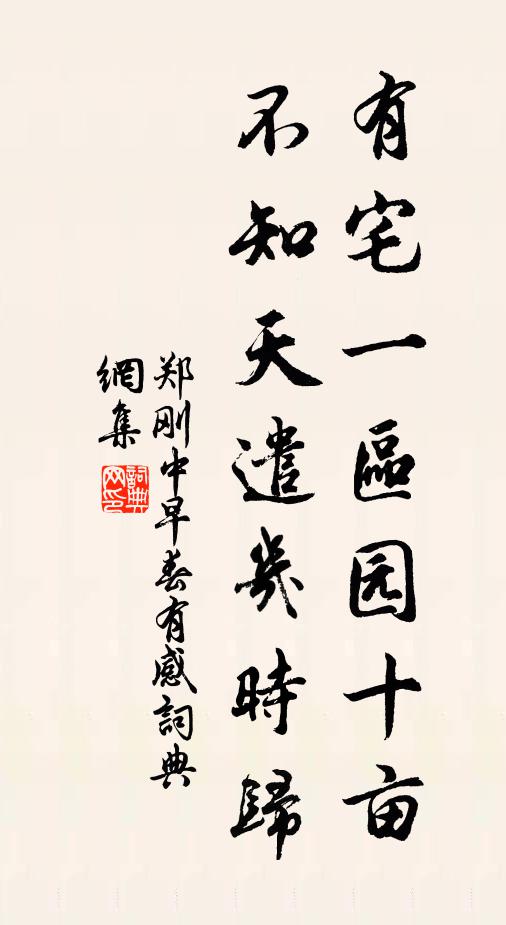 有宅一區园十亩
不知天遣幾時歸
郑刚中早春有感詞典
網集
詞典
网印